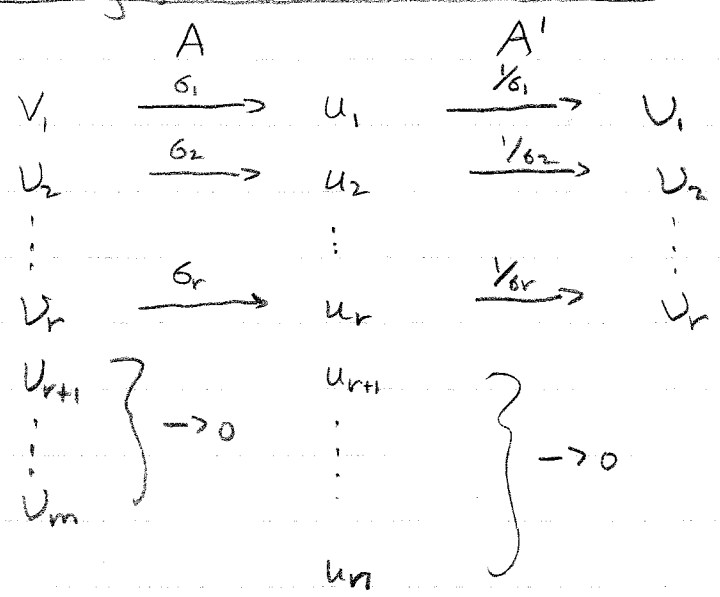 A A'
V₁ σ₁ u₁ 1/σ₁ v₁
v₂ σ₂ u₂ 1/σ₂ v₂
⋮ ⋮ ⋮
vᵣ σᵣ uᵣ 1/σᵣ vᵣ
vᵣ₊₁ uᵣ₊₁
⋮ → 0 ⋮ → 0
vₘ
uₙ